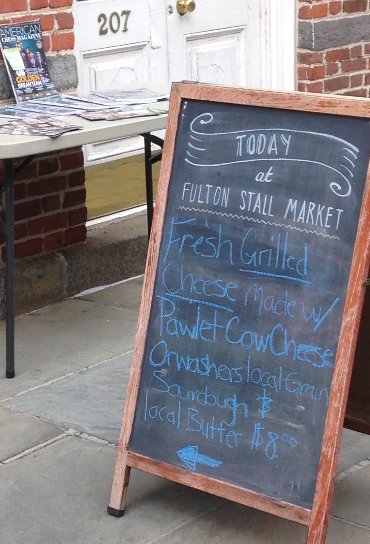 AMERICAN
CHESS MAGAZINE
US
GOLDEN
DREAM TEAM
207
TODAY
at
FULTON STALL MARKET
Fresh Grilled
Cheese made w/
Pawlet Cow Cheese
Orwashers local Grain
Sourdough &
local Butter $8.00